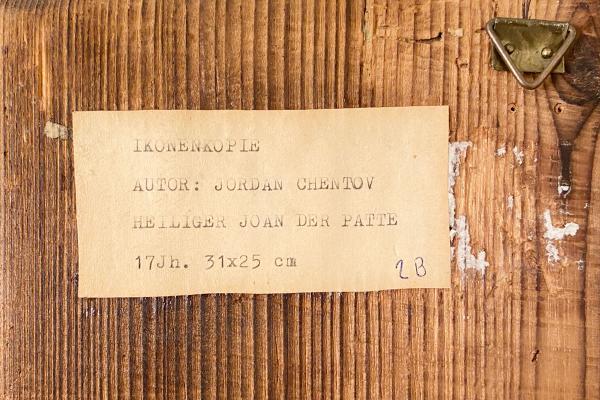 IKONENKOPIE
AUTOR: JORDAN CHENTOV
HEILIGER JOAN DER PATTE
17Jh. 31x25 cm
2B